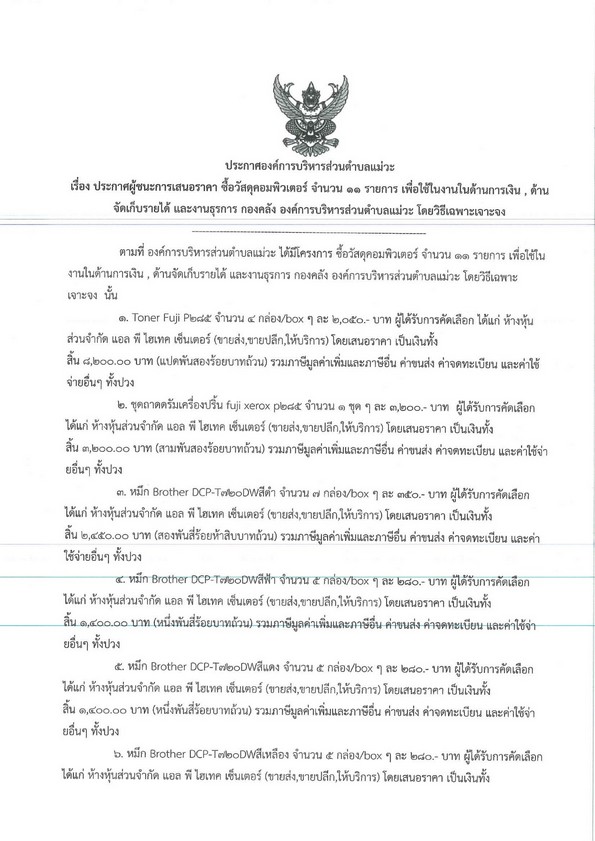 ประกาศองค์การบริหารส่วนตำบลแม่วะ
เรื่อง ประกาศผู้ชนะการเสนอราคา ซื้อวัสดุคอมพิวเตอร์ จำนวน ๑๑ รายการ เพื่อใช้ในงานในด้านการเงิน , ด้าน
จัดเก็บรายได้ และงานธุรการ กองคลัง องค์การบริหารส่วนตำบลแม่วะ โดยวิธีเฉพาะเจาะจง
ตามที่ องค์การบริหารส่วนตำบลแม่วะ ได้มีโครงการ ซื้อวัสดุคอมพิวเตอร์ จำนวน ๑๑ รายการ เพื่อใช้ใน
งานในด้านการเงิน , ด้านจัดเก็บรายได้ และงานธุรการ กองคลัง องค์การบริหารส่วนตำบลแม่วะ โดยวิธีเฉพาะ
เจาะจง นั้น
๑. Toner Fuji P๒๘๕ จำนวน ๔ กล่อง/box ๆ ละ ๒,๐๕๐.- บาท ผู้ได้รับการคัดเลือก ได้แก่ ห้างหุ้น
ส่วนจำกัด แอล พี ไฮเทค เซ็นเตอร์ (ขายส่ง,ขายปลีก,ให้บริการ) โดยเสนอราคา เป็นเงินทั้ง
สิ้น ๘,๒๐๐.๐๐ บาท (แปดพันสองร้อยบาทถ้วน) รวมภาษีมูลค่าเพิ่มและภาษีอื่น ค่าขนส่ง ค่าจดทะเบียน และค่าใช้
จ่ายอื่นๆ ทั้งปวง
๒. ชุดถาดดรัมเครื่องปริ้น fuji xerox p๒๘๕ จำนวน ๑ ชุด ๆ ละ ๓,๒๐๐.- บาท ผู้ได้รับการคัดเลือก
ได้แก่ ห้างหุ้นส่วนจำกัด แอล พี ไฮเทค เซ็นเตอร์ (ขายส่ง,ขายปลีก,ให้บริการ) โดยเสนอราคา เป็นเงินทั้ง
สิ้น ๓,๒๐๐.๐๐ บาท (สามพันสองร้อยบาทถ้วน) รวมภาษีมูลค่าเพิ่มและภาษีอื่น ค่าขนส่ง ค่าจดทะเบียน และค่าใช้จ่า
ยอื่นๆ ทั้งปวง
๓. หมึก Brother DCP-T๗๒๐DWสีดำ จำนวน ๗ กล่อง/box ๆ ละ ๓๕๐.- บาท ผู้ได้รับการคัดเลือก
ได้แก่ ห้างหุ้นส่วนจำกัด แอล พี ไฮเทค เซ็นเตอร์ (ขายส่ง,ขายปลีก,ให้บริการ) โดยเสนอราคา เป็นเงินทั้ง
สิ้น ๒,๔๕๐.๐๐ บาท (สองพันสี่ร้อยห้าสิบบาทถ้วน) รวมภาษีมูลค่าเพิ่มและภาษีอื่น ค่าขนส่ง ค่าจดทะเบียน และค่า
ใช้จ่ายอื่นๆ ทั้งปวง
๔. หมึก Brother DCP-T๗๒๐DWสีฟ้า จำนวน ๕ กล่อง/box ๆ ละ ๒๘๐.- บาท ผู้ได้รับการคัดเลือก
ได้แก่ ห้างหุ้นส่วนจำกัด แอล พี ไฮเทค เซ็นเตอร์ (ขายส่ง,ขายปลีก,ให้บริการ) โดยเสนอราคา เป็นเงินทั้ง
สิ้น ๑,๔๐๐.๐๐ บาท (หนึ่งพันสี่ร้อยบาทถ้วน) รวมภาษีมูลค่าเพิ่มและภาษีอื่น ค่าขนส่ง ค่าจดทะเบียน และค่าใช้จ่า
ยอื่นๆ ทั้งปวง
๕. หมึก Brother DCP-T๗๒๐DWสีแดง จำนวน ๕ กล่อง/box ๆ ละ ๒๘๐.- บาท ผู้ได้รับการคัดเลือก
ได้แก่ ห้างหุ้นส่วนจำกัด แอล พี ไฮเทค เซ็นเตอร์ (ขายส่ง,ขายปลีก,ให้บริการ) โดยเสนอราคา เป็นเงินทั้ง
สิ้น ๑,๔๐๐.๐๐ บาท (หนึ่งพันสี่ร้อยบาทถ้วน) รวมภาษีมูลค่าเพิ่มและภาษีอื่น ค่าขนส่ง ค่าจดทะเบียน และค่าใช้จ่า
ยอื่นๆ ทั้งปวง
๖. หมึก Brother DCP-T๗๒๐DWสีเหลือง จำนวน ๕ กล่อง/box ๆ ละ ๒๘๐.- บาท ผู้ได้รับการคัดเลือก
ได้แก่ ห้างหุ้นส่วนจำกัด แอล พี ไฮเทค เซ็นเตอร์ (ขายส่ง,ขายปลีก,ให้บริการ) โดยเสนอราคา เป็นเงินทั้ง